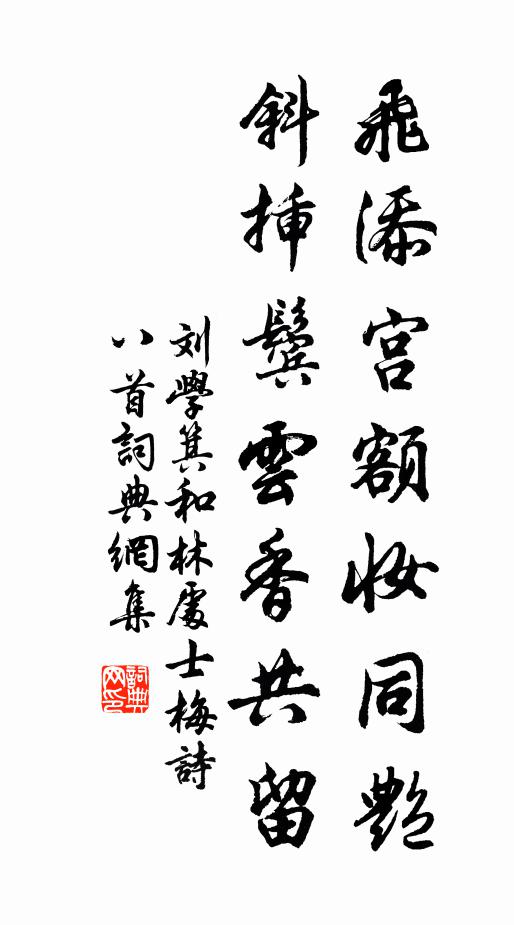 飛添宫額妝同艷
斜挿鬢雲香共留
刘學箕和林處士梅詩
八首詞典網集
詞典网印